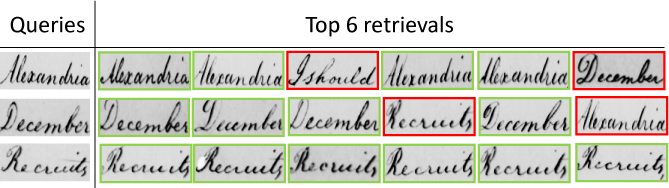 Queries Top 6 retrievals
Alexandria Alexandria Alexandria I should Alexandria Alexandria December
December December December December Recruits December Alexandria
Recruits Recruits Recruits Recruits Recruits Recruits Recruits,